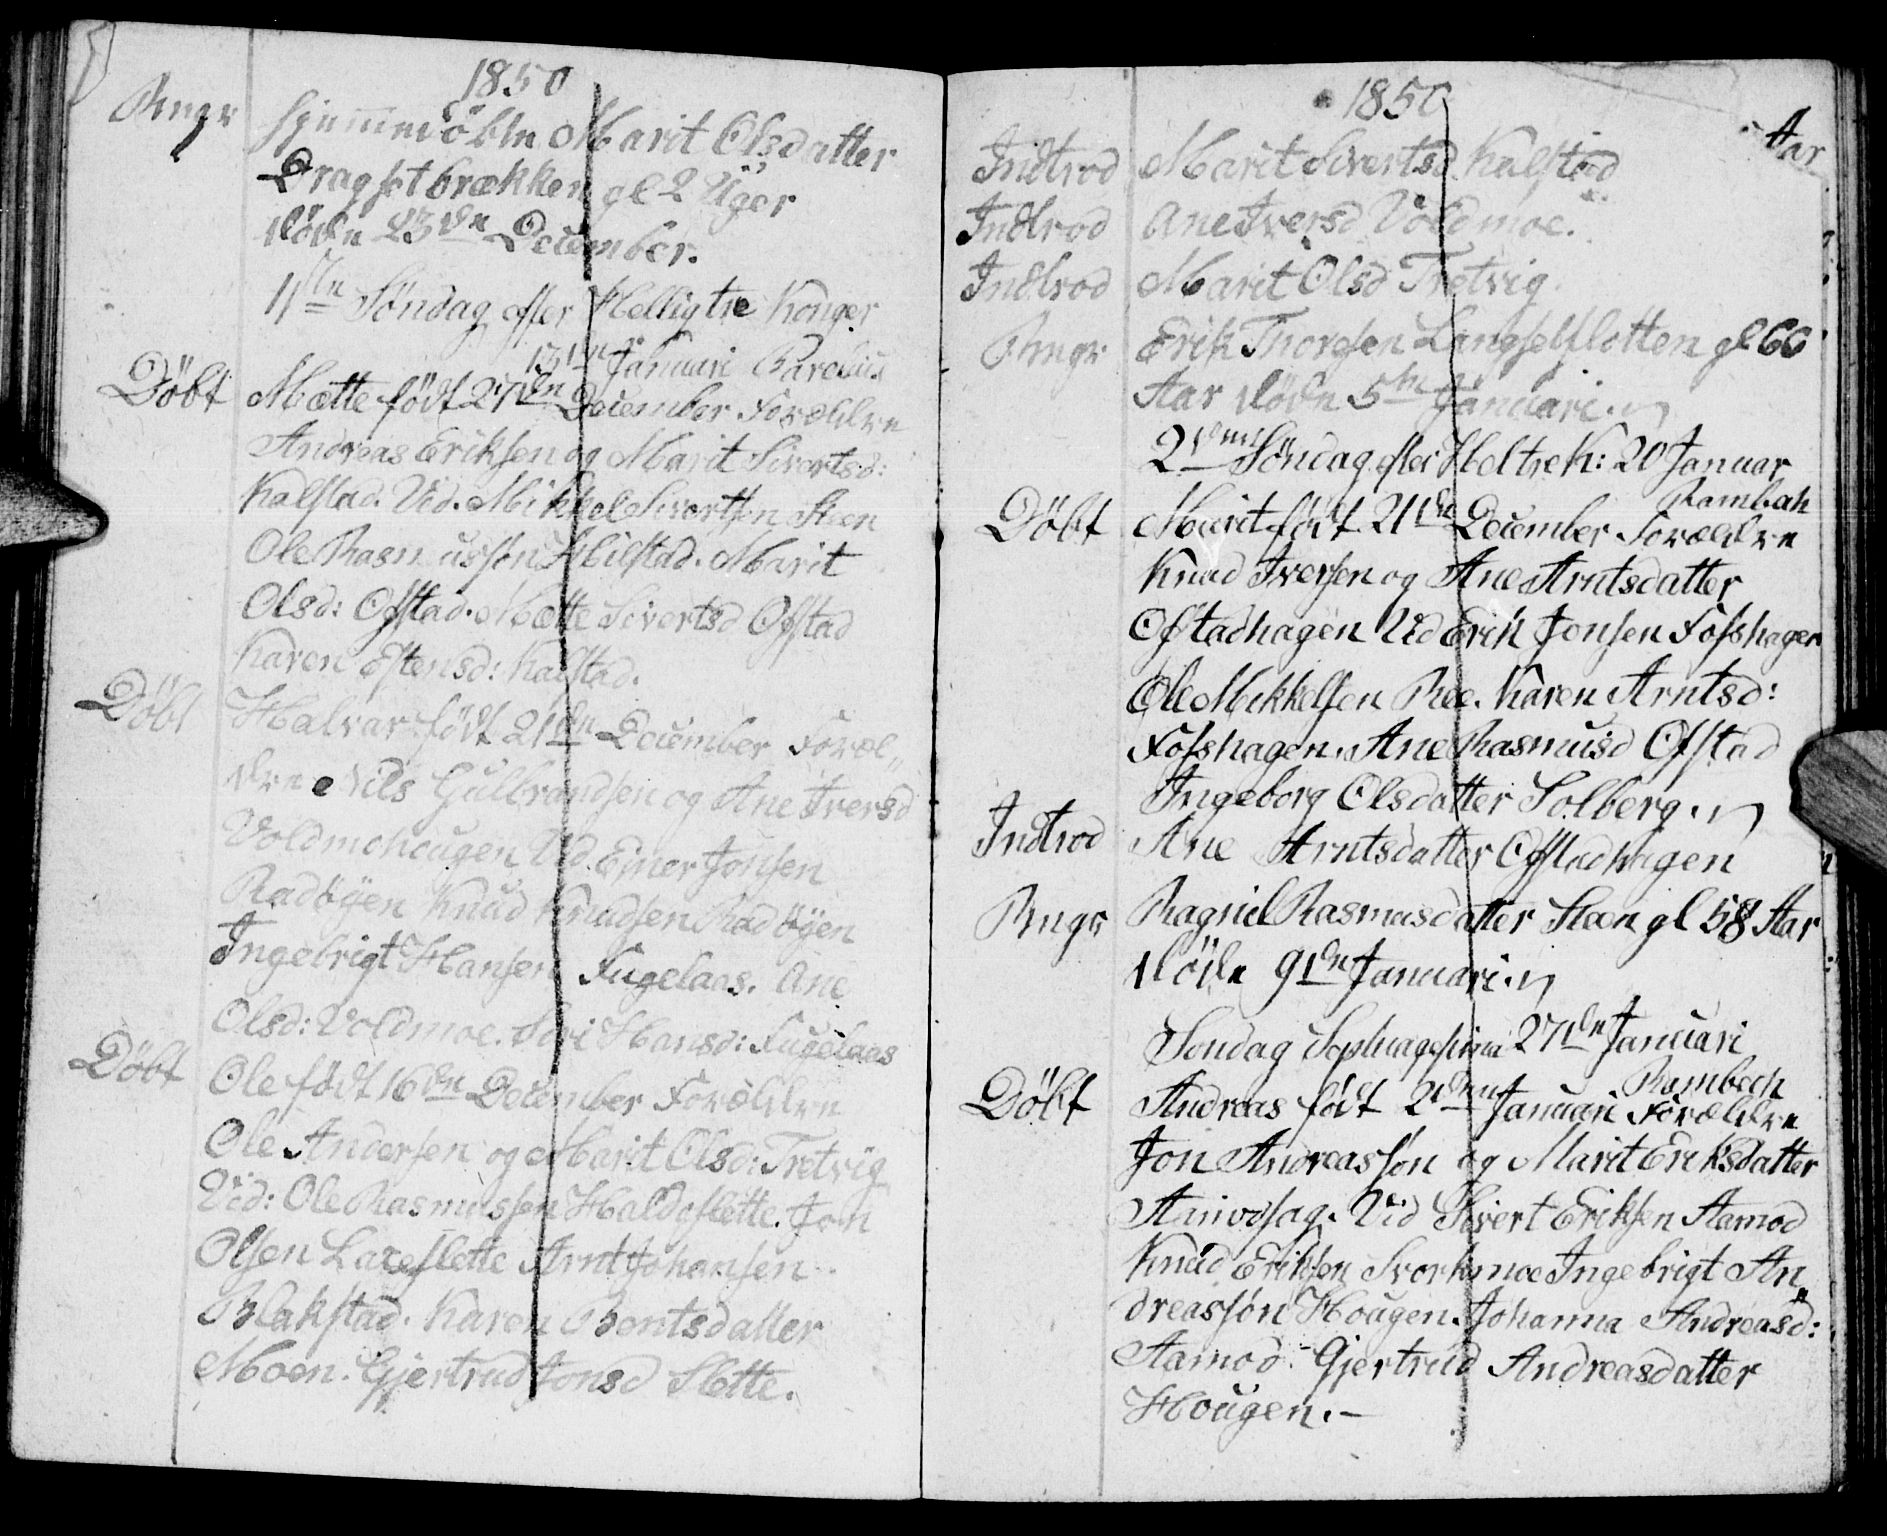 1850
Bngr hjemmedöbte Marit Olsdatter
Dragsetbrækken gl 2 Uger
döde 23de December.
1ste Söndag efter Hellig tre Konger
13de Januari
Döbt Mætte födt 27de December Forældre
Andreas Eriksen og Marit Sivertsd:
Kalstad. Vid. Mikkel Sivertsen Steen
Ole Rasmussen Hilstad. Marit
Olsd: Ofstad. Mætte Sivertsd Ofstad
Karen Estensd: Kalstad.
Döbt Halvar födt 21de December Foræl„
dre Nils Gulbrandsen og Ane Iversd
Voldmohougen Vid. Ejner Jonsen
Radöyen Knud Knudsen Radöyen
Ingebrigt Hansen Fugelaas. Ane
Olsd: Voldmoe. Hansd: Fugelaas
Döbt Ole födt 16de December Forældre
Ole Andersen og Marit Olsd: Tretvig
Vid: Ole Rasmussen Haldeslette. Jon
Olsen Laxeslette Arnt Johansen
Blakstad. Karen Bentsdatter
Moen. Gjertrud Jonsd Slette.
1850
Aar
Indtrod Marit Sivertsd Kalstad
Indtrod Ane Iversd Voldmoe.
Indtrod Marit Olsd Tretvig.
Bngr Erik Thoresen Langsetslotten gl 66
Aar döde 5te Januari.
2den Söndag efter Hel tre K: 20 Januar
Rambech
Döbt Marit födt 21de December Forældre
Knud Iversen og Ane Arntsdatter
Ofstadhagen Vid Erik Jonsen Fosshagen
Ole Mikkelsen Ree. Karen Arntsd:
Fosshagen. Ane Rasmusd Ofstad
Ingeborg Olsdatter Solberg.
Indtrod Ane Arntsdatter Ofstadhagen
Bngr Ragnil Rasmusdatter Steen gl 58 Aar
döde 9de Januari.
Söndag Septuagesima 27de Januari
Rambech
Döbt Andreas födt 2den Januari Forældre
Jon Andreassön og Marit Eriksdatter
Aamodsag. Vid Sivert Eriksen Aamod
Knud Eriksen Svorkmoe Ingebrigt An„
dreassön Hougen. Johanna Andreasd:
Aamod. Gjertrud Andreasdatter
Hougen.–